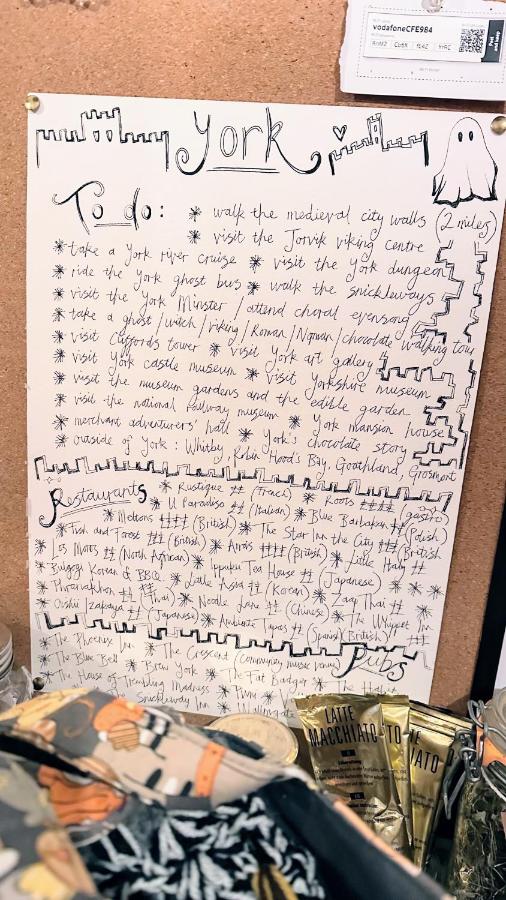 vodafoneCFE984
York
To do:
* walk the medieval city walls (2 miles)
* visit the Jorvik viking centre
* take a York river cruise * visit the York dungeon
* ride the York ghost bus * walk the snickleways
* visit the York Minster / attend choral evensong
* take a ghost/witch/viking/Roman/Norman/chocolate walking tour
* visit Cliffords tower * visit York art gallery
* visit York castle museum * visit Yorkshire museum
* visit the museum gardens and the edible garden
* visit the national railway museum * York mansion house
* merchant adventurers' hall * York's chocolate story
* outside of York: Whitby, Robin Hood's Bay, Goathland, Grosmont
Restaurants
* Rustique ££ (French) * Roots ££££ (gastro)
* Il Paradiso ££ (Italian) * Blue Barbakan ££ (Polish)
* Meltons ££££ (British) * The Star Inn the City £££ (British)
* Fish and Forest £££ (British) * Arras £££ (British) * Little Italy ££
* Los Moros ££ (North African) * Ippuku Tea House ££ (Japanese)
Korean & BBQ * Little Asia ££ (Korean) * Zaap Thai ££
* Phranakhon ££ (Thai) * Noodle Lane ££ (Chinese) * The Whippet Inn £££ (British)
* Oishii Izakaya ££ (Japanese) * Ambiente Tapas ££ (Spanish)
Pubs
* The Phoenix Inn * The Crescent (community music venue)
* The Blue Bell * Brew York * The Fat Badger
* The House of Trembling Madness * Pivni *
Snickleway Inn * Walmgate
LATTE
MACCHIATO
TO
IATO